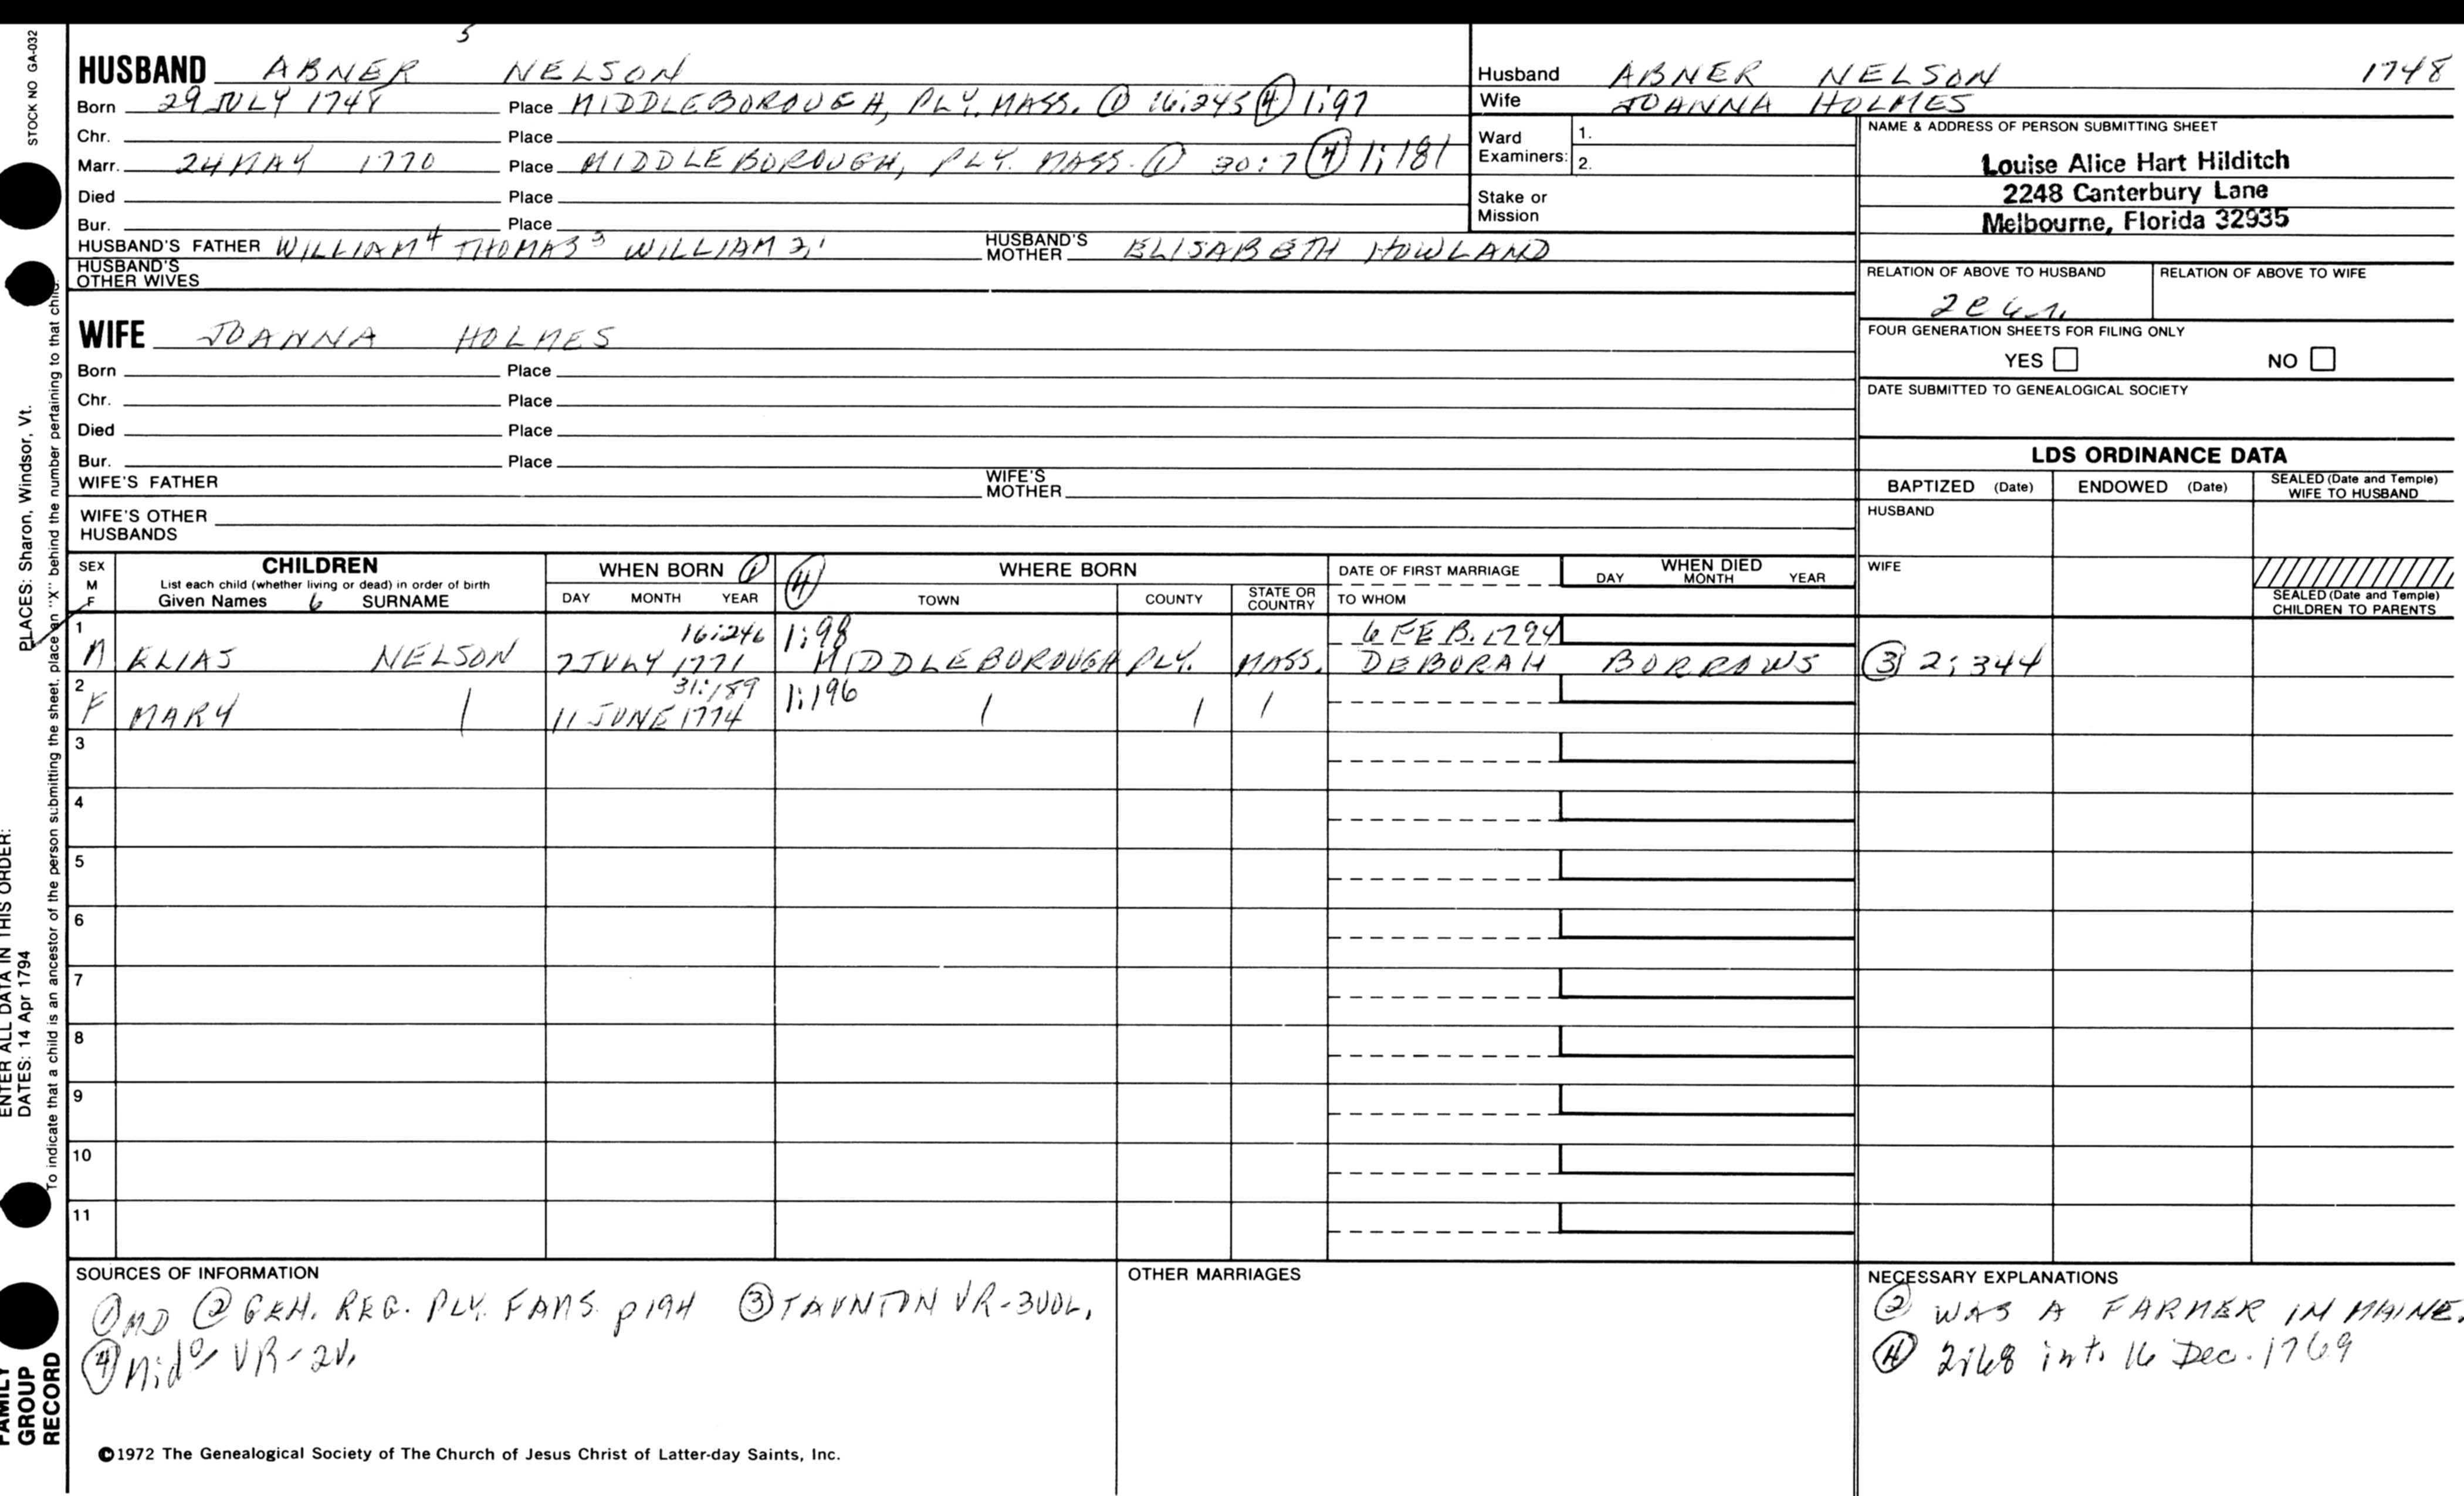 STOCK NO GA-032
PLACES: Sharon, Windsor, Vt.
ENTER ALL DATA IN THIS ORDER:
DATES: 14 Apr 1794
To indicate that a child is an ancestor of the person submitting the sheet, place an "X" behind the number pertaining to that child.
FAMILY
GROUP
RECORD
5
HUSBAND ABNER NELSON
Born 29 JULY 1748 Place MIDDLEBOROUGH, PLY. MASS. ① 16:245 ④ 1:97
Chr. Place
Marr. 24 MAY 1770 Place MIDDLEBOROUGH, PLY. MASS. ① 30:7 ④ 1:181
Died Place
Bur. Place
HUSBAND'S FATHER WILLIAM⁴ THOMAS³ WILLIAM 2,1 HUSBAND'S MOTHER ELISABETH HOWLAND
HUSBAND'S OTHER WIVES
WIFE JOANNA HOLMES
Born Place
Chr. Place
Died Place
Bur. Place
WIFE'S FATHER WIFE'S MOTHER
WIFE'S OTHER HUSBANDS
Husband ABNER NELSON 1748
Wife JOANNA HOLMES
Ward Examiners: 1.
2.
Stake or Mission
NAME & ADDRESS OF PERSON SUBMITTING SHEET
Louise Alice Hart Hilditch
2248 Canterbury Lane
Melbourne, Florida 32935
RELATION OF ABOVE TO HUSBAND RELATION OF ABOVE TO WIFE
FOUR GENERATION SHEETS FOR FILING ONLY
YES NO
DATE SUBMITTED TO GENEALOGICAL SOCIETY
LDS ORDINANCE DATA
BAPTIZED (Date) ENDOWED (Date) SEALED (Date and Temple) WIFE TO HUSBAND
HUSBAND
WIFE
SEALED (Date and Temple) CHILDREN TO PARENTS
SEX M F CHILDREN WHEN BORN ① ④ WHERE BORN DATE OF FIRST MARRIAGE WHEN DIED
List each child (whether living or dead) in order of birth
Given Names 6 SURNAME DAY MONTH YEAR TOWN COUNTY STATE OR COUNTRY TO WHOM DAY MONTH YEAR
1 16:246 1:98 6 FEB. 1794
M ELIAS NELSON 7 JULY 1771 MIDDLEBOROUGH PLY. MASS. DEBORAH BORROWS ③ 2:344
2 31:189 1:196
F MARY 11 JUNE 1774
3
4
5
6
7
8
9
10
11
SOURCES OF INFORMATION
① MD ② GEN. REG. PLY. FAMS. p194 ③ TAUNTON VR-3VOL,
④ Mido VR-2V.
OTHER MARRIAGES
NECESSARY EXPLANATIONS
② WAS A FARMER IN MAINE.
④ 2:68 int. 16 Dec. 1769
©1972 The Genealogical Society of The Church of Jesus Christ of Latter-day Saints, Inc.